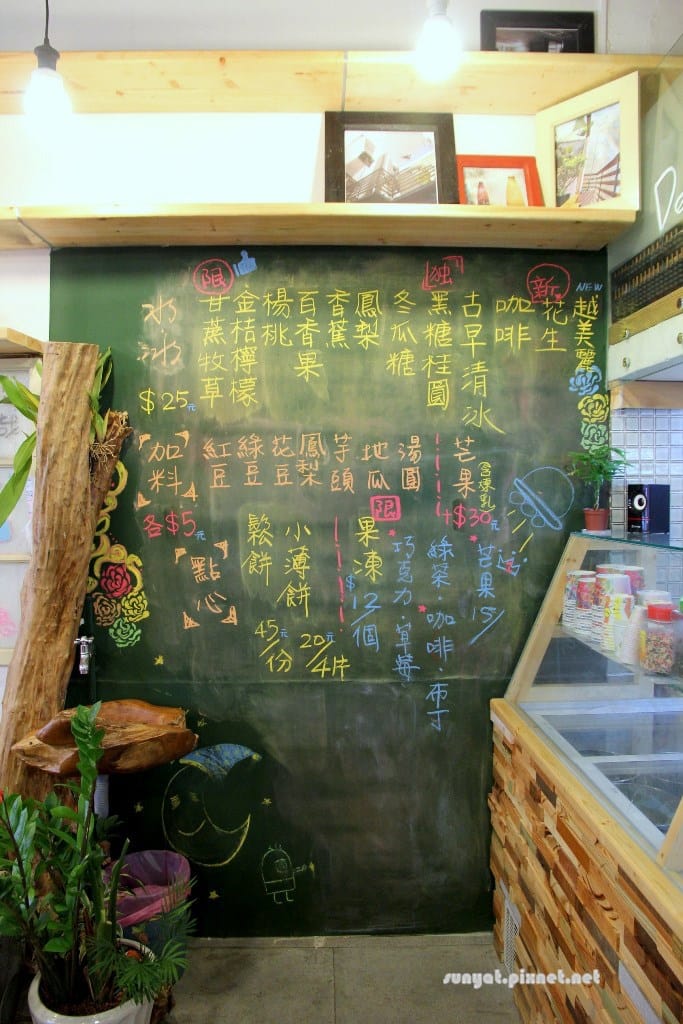 冰冰
$25元
限
甘蔗牧草
金桔檸檬
楊桃
百香果
香蕉
鳳梨
冬瓜糖
獨
黑糖桂圓
古早清冰
咖啡
新
花生
NEW
越美麗
加料
各$5元
紅豆
綠豆
花豆
鳳梨
芋頭
地瓜
湯圓
芒果
含煉乳
$30元
點心
鬆餅
45元/份
小薄餅
20元/4片
限
果凍
$12/個
巧克力·草莓
綠茶·咖啡·布丁
芒果15/
sunyat.pixnet.net